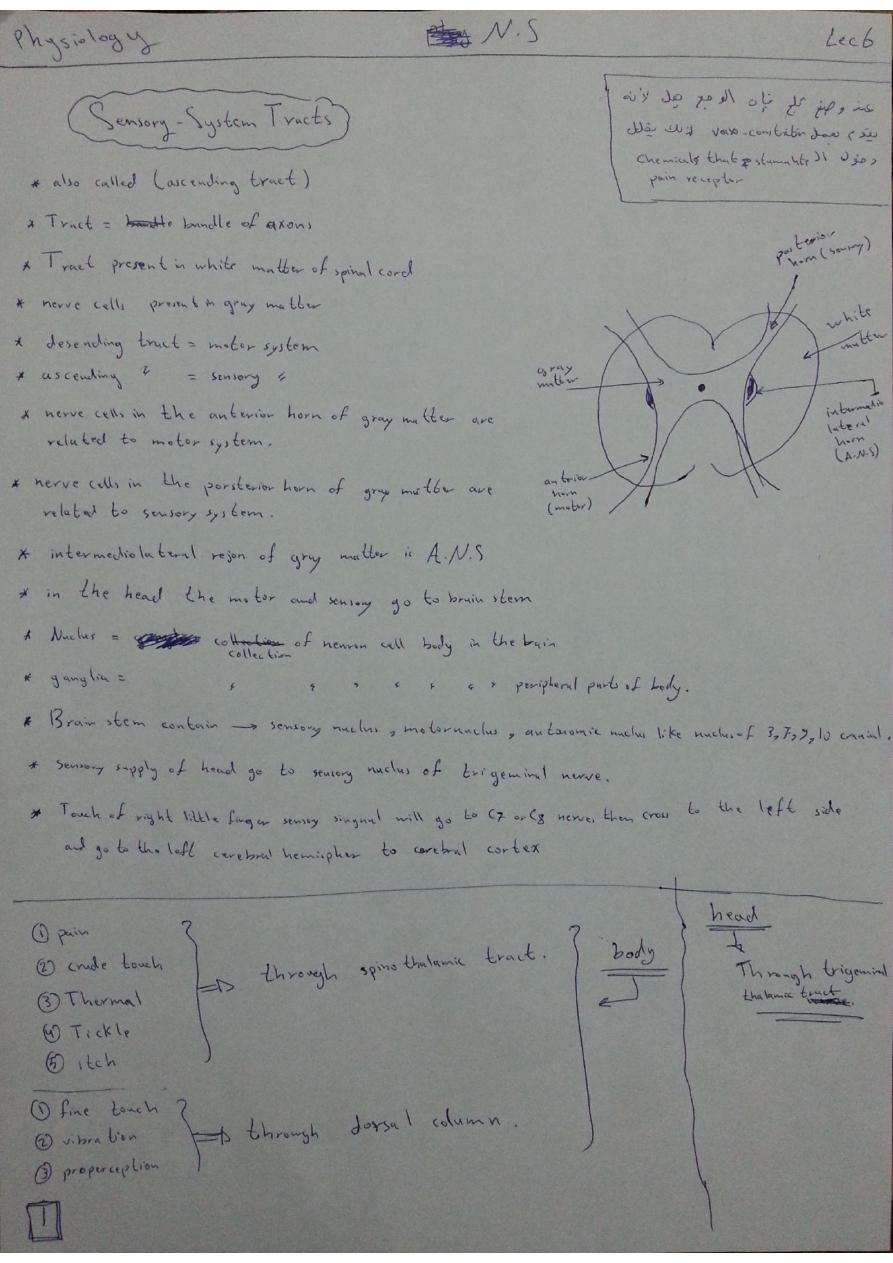 Physiology
N.S
Lec 6
Sensory-System Tracts
عند وضع ثلج فإن الوجع يقل لأنه
يقوم بعمل vaso-constriction لذلك يقلل
وصول الـ chemicals that stumulate
pain receptor
* also called (ascending tract)
* Tract = bundle of axons
* Tract present in white matter of spinal cord
* nerve cells present in gray matter
* desending tract = motor system
* ascending " = sensory "
* nerve cells in the anterior horn of gray matter are
related to motor system.
* nerve cells in the porsterior horn of gray matter are
related to sensory system.
posterior
horn (sensory)
white
matter
gray
matter
intermedio
lateral
horn
(A.N.S)
antrior
horn
(motor)
* intermediolateral rejon of gray matter is A.N.S
* in the head the motor and sensory go to brain stem
* Nuclus = collection of neuron cell body in the brain
* ganglia = " " " " " " " peripheral parts of body.
* Brain stem contain → sensory nuclus, motor nuclus, autonomic nuclus like nuclus of 3,7,9,10 cranial.
* Sensory supply of head go to sensory nuclus of trigeminal nerve.
* Touch of right little finger sensory singnal will go to C7 or C8 nerve, then cross to the left side
and go to the left cerebral hemispher to cerebral cortex
① pain
② crude touch
③ Thermal
④ Tickle
⑤ itch
⇒ through spinothalamic tract.
body
head
Through trigeminal
thalamic tract.
① fine touch
② vibration
③ properception
⇒ through dorsal column.
1